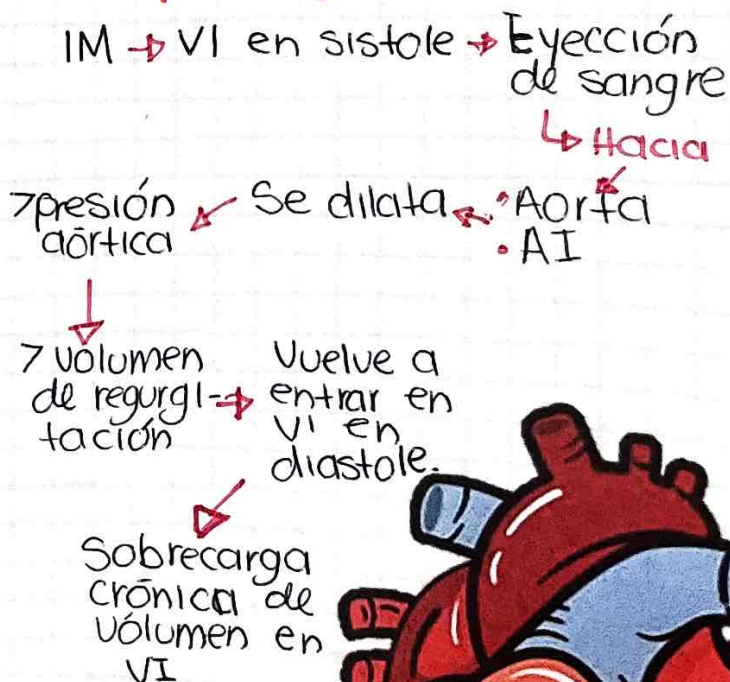 IM → VI en sistole → Eyección
de sangre
↳ Hacia
• Aorta
• AI
Se dilata
>presión
aórtica
> volumen
de regurgi-
tación
Vuelve a
entrar en
VI en
diastole.
Sobrecarga
crónica de
volumen en
VI